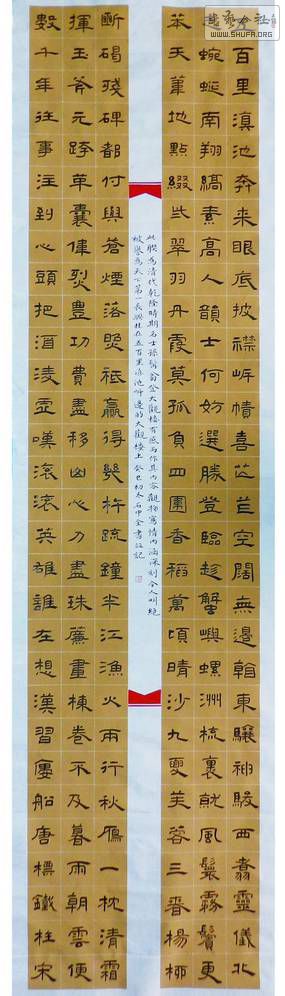 百里滇池奔來眼底披襟岸幘喜芒芒空闊無邊看東驤神駿西翥靈儀北
蜿蜒南翔縞素高人韻士何妨選勝登臨趁蟹嶼螺洲梳裹就風鬟霧鬢更
苹天葦地點綴些翠羽丹霞莫孤負四圍香稻萬頃晴沙九夏芙蓉三春楊柳
數千年往事注到心頭把酒淩虛嘆滾滾英雄誰在想漢習廔船唐標鐵柱宋
揮玉斧元跨革囊偉烈豐功費盡移山心力盡珠簾畫棟卷不及暮雨朝雲便
斷碣殘碑都付與蒼煙落照祗贏得幾杵疏鐘半江漁火兩行秋雁一枕清霜
此聯為清代乾隆時期名士孫髯翁登大觀樓有感而作其內容觀物寫情內涵深刻令人叫絕
被譽為天下第一長聯挂在五百里滇池畔邊的大觀樓上癸巳初冬石中金書并記
WWW.SHUFA.ORG